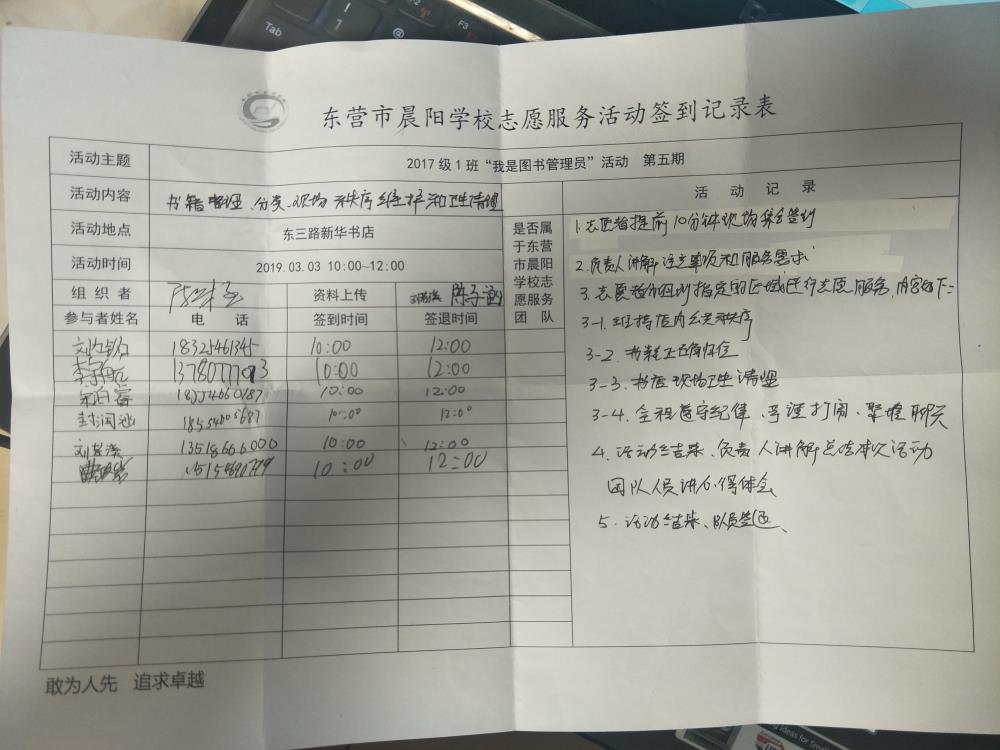 Tab
!
1
@
F2
F3
东营市晨阳学校志愿服务活动签到记录表
活动主题 2017 级 1 班“我是图书管理员”活动 第五期
活动内容 书籍整理、分类、现场秩序维护和卫生清理
活动地点 东三路新华书店
活动时间 2019.03.03 10:00~12:00
组织者 资料上传 陈子涵
参与者姓名 电话 签到时间 签退时间
18325461345 10:00 12:00
10:00 12:00
10:00 12:00
10:00 12:00
13518666000 10:00 12:00
10:00 12:00
是否属
于东营
市晨阳
学校志
愿服务
团 队
活 动 记 录
1.志愿者提前10分钟现场集合签到
2.负责人讲解注意事项和服务需求
3.志愿者分组到指定的区域进行志愿服务,内容如下:
3-1.维持店内公共秩序
3-2.书籍正确归位
3-3.书店现场卫生清理
3-4.全程遵守纪律、严谨打闹、聚堆聊天
4.活动结束、负责人讲解总结本次活动
团队人员讲心得体会
5.活动结束、队员签退、
敢为人先 追求卓越